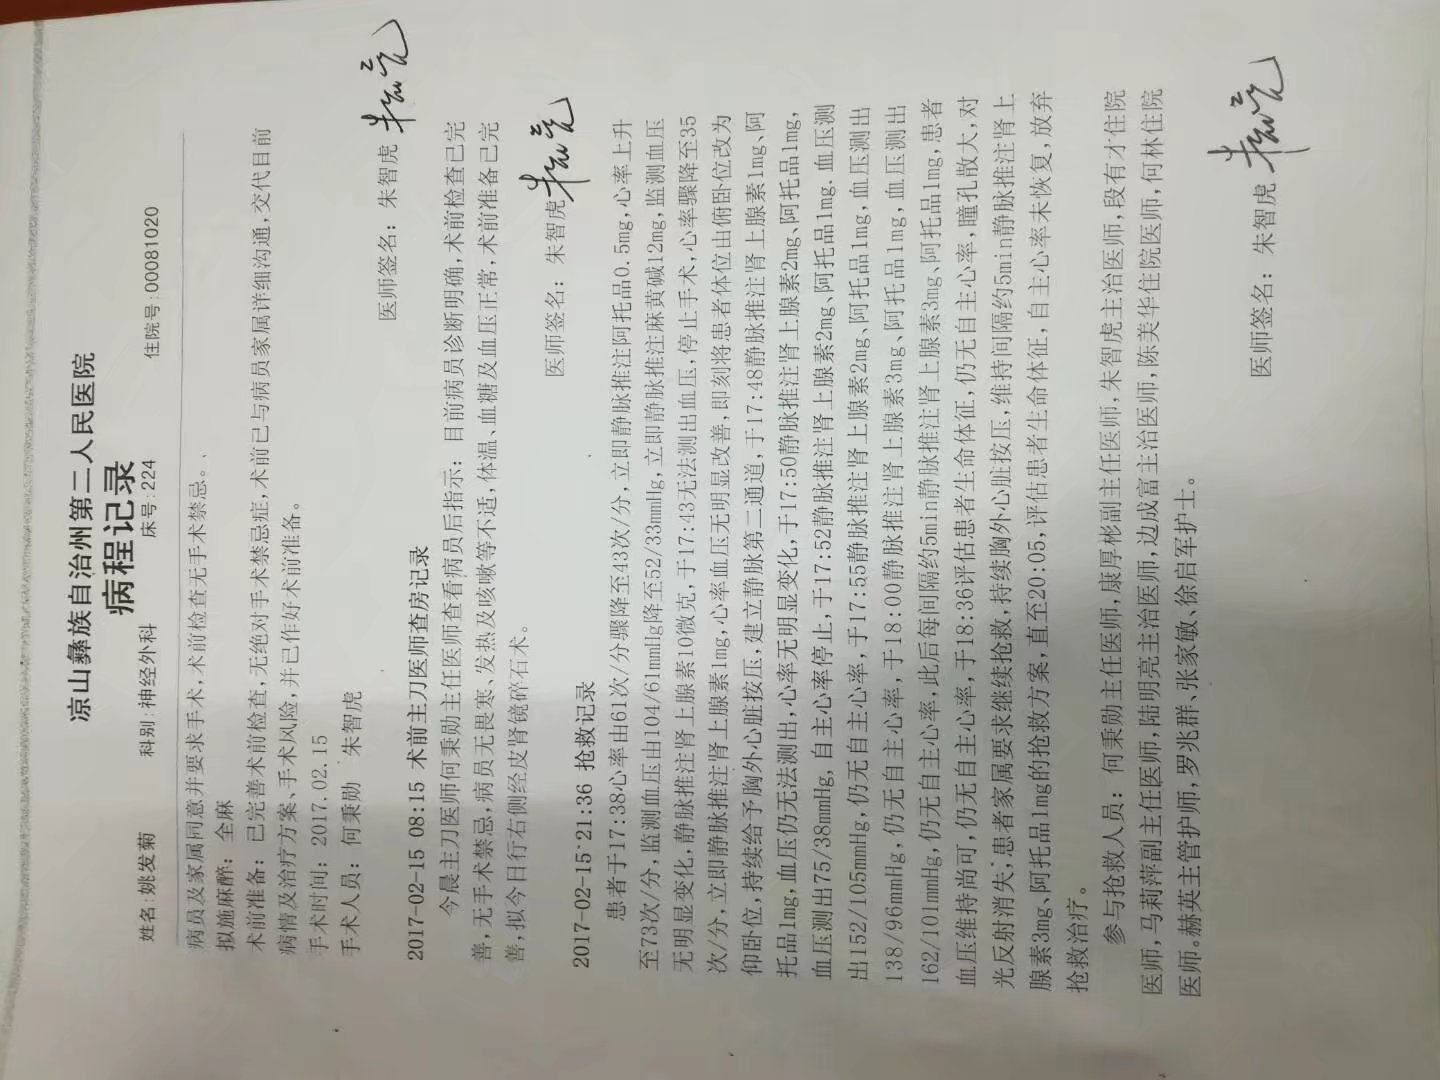 凉山彝族自治州第二人民医院
病程记录
姓名:姚发菊 科别:神经外科 床号:224 住院号:00081020
病员及家属同意并要求手术,术前检查无手术禁忌。
拟施麻醉：全麻
术前准备：已完善术前检查,无绝对手术禁忌症,术前已与病员家属详细沟通,交代目前
病情及治疗方案、手术风险,并已作好术前准备。
手术时间：2017.02.15
手术人员：何秉勋 朱智虎
医师签名：朱智虎
2017-02-15 08:15 术前主刀医师查房记录
今晨主刀医师何秉勋主任医师查看病员后指示：目前病员诊断明确,术前检查已完
善,无手术禁忌,病员无畏寒、发热及咳嗽等不适,体温、血糖及血压正常,术前准备已完
善,拟今日行右侧经皮肾镜碎石术。
医师签名：朱智虎
2017-02-15 21:36 抢救记录
患者于17:38心率由61次/分骤降至43次/分,立即静脉推注阿托品0.5mg,心率上升
至73次/分,监测血压由104/61mmHg降至52/33mmHg,立即静脉推注麻黄碱12mg,监测血压
无明显变化,静脉推注肾上腺素10微克,于17:43无法测出血压,停止手术,心率骤降至35
次/分,立即静脉推注肾上腺素1mg,心率血压无明显改善,即刻将患者体位由俯卧位改为
仰卧位,持续给予胸外心脏按压,建立静脉第二通道,于17:48静脉推注肾上腺素1mg、阿
托品1mg,血压仍无法测出,心率无明显变化,于17:50静脉推注肾上腺素2mg、阿托品1mg,
血压测出75/38mmHg,自主心率停止,于17:52静脉推注肾上腺素2mg、阿托品1mg.血压测
出152/105mmHg,仍无自主心率,于17:55静脉推注肾上腺素2mg、阿托品1mg,血压测出
138/96mmHg,仍无自主心率,于18:00静脉推注肾上腺素3mg、阿托品1mg,血压测出
162/101mmHg,仍无自主心率,此后每间隔约5min静脉推注肾上腺素3mg、阿托品1mg,患者
血压维持尚可,仍无自主心率,于18:36评估患者生命体征,仍无自主心率,瞳孔散大,对
光反射消失;患者家属要求继续抢救,持续胸外心脏按压,维持间隔约5min静脉推注肾上
腺素3mg、阿托品1mg的抢救方案,直至20:05,评估患者生命体征,自主心率未恢复,放弃
抢救治疗。
参与抢救人员：何秉勋主任医师,康厚彬副主任医师,朱智虎主治医师,段有才住院
医师,马莉萍副主任医师,陆明亮主治医师,边成富主治医师,陈美华住院医师,何林住院
医师。赫英主管护师,罗兆群、张家敏、徐启军护士。
医师签名：朱智虎